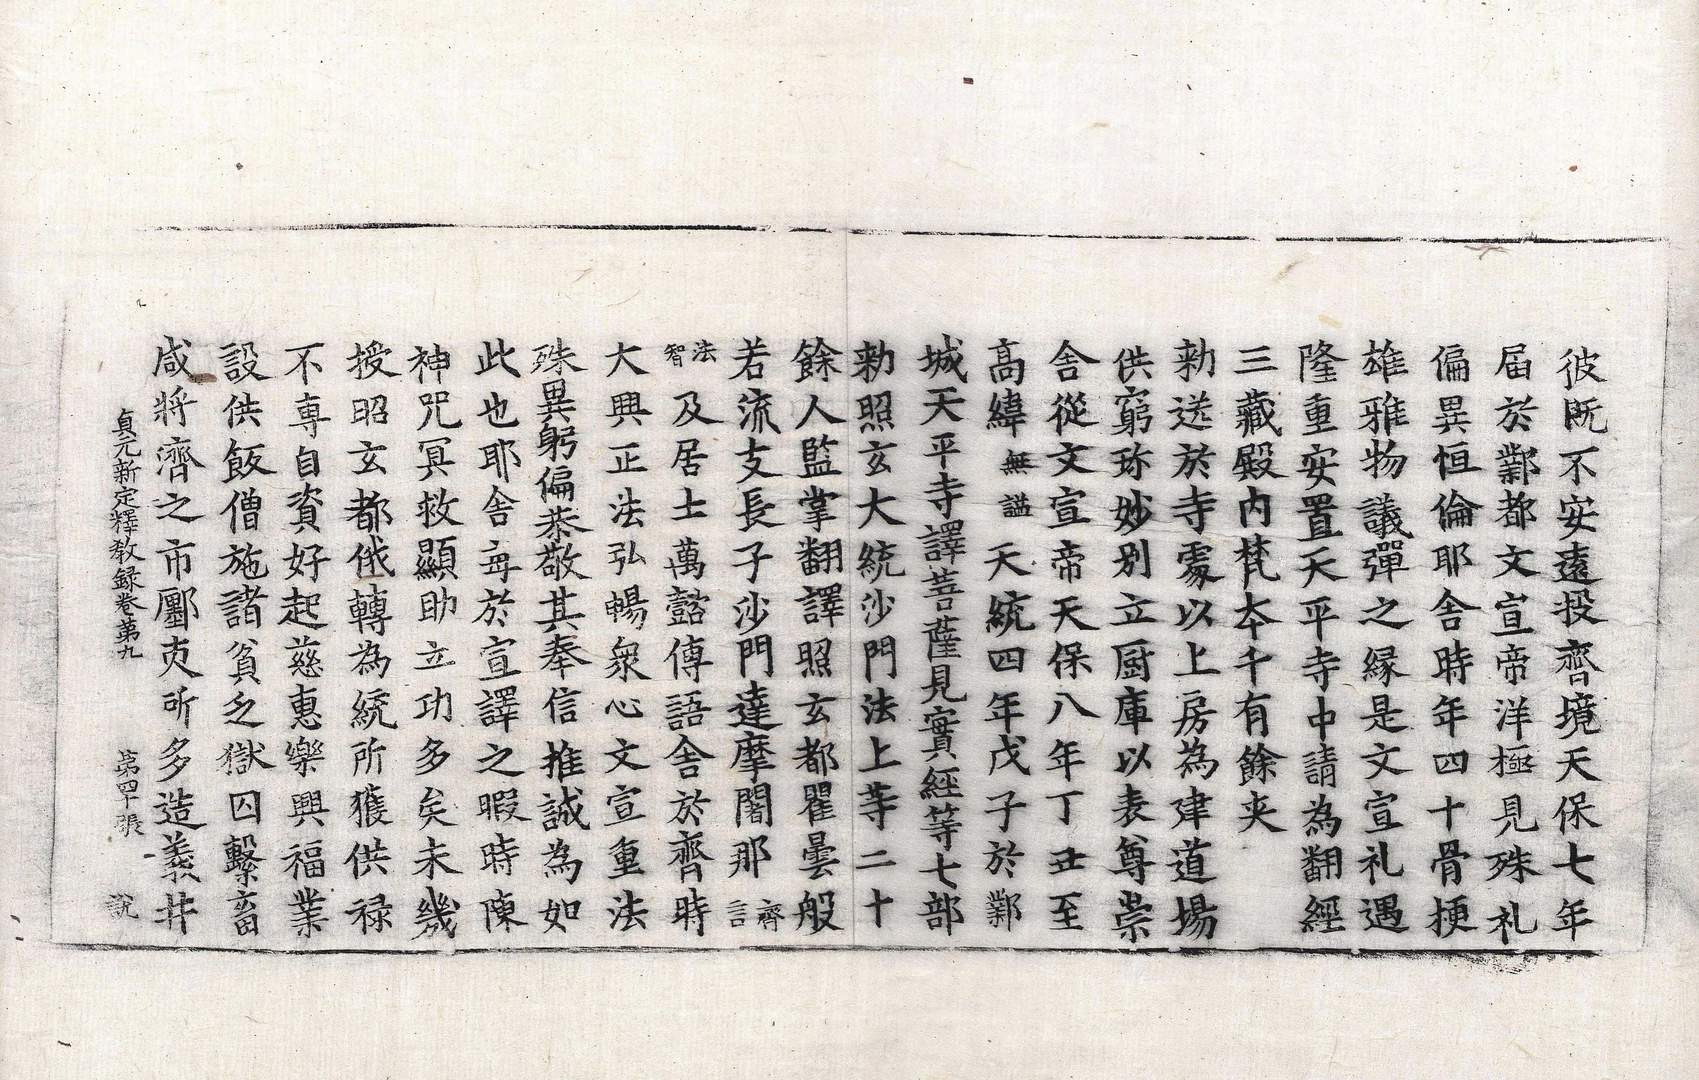 彼旣不安遠投齊境天保七年
届於鄴都文宣帝洋極見殊礼
偏異恒倫耶舎時年四十骨梗
雄雅物議彈之緣是文宣礼遇
隆重安置天平寺中請為翻經
三藏殿内梵夲千有餘夾
勑送於寺處以上房為建道場
供窮珎妙别立厨庫以表尊崇
舎從文宣帝天保八年丁丑至
髙緯無謚天統四年戊子於鄴
城天平寺譯菩薩見實經等七部
勑照玄大統沙門法上等二十
餘人監掌翻譯照玄都瞿曇般
若流支長子沙門達摩闍那齊言
法智及居士萬懿傳語舎於齊時
大興正法弘暢衆心文宣重法
殊異躬偏恭敬其奉信推誠為如
此也耶舎每於宣譯之暇時陳
神咒冥救顯助立功多矣未幾
授昭玄都俄轉為統所獲供禄
不専自資好起慈惠樂興福業
設供飯僧施諸貧乏獄囚繫畜
咸將濟之市鄽吏所多造義井
貞元新定釋教録卷第九 第四十張 說